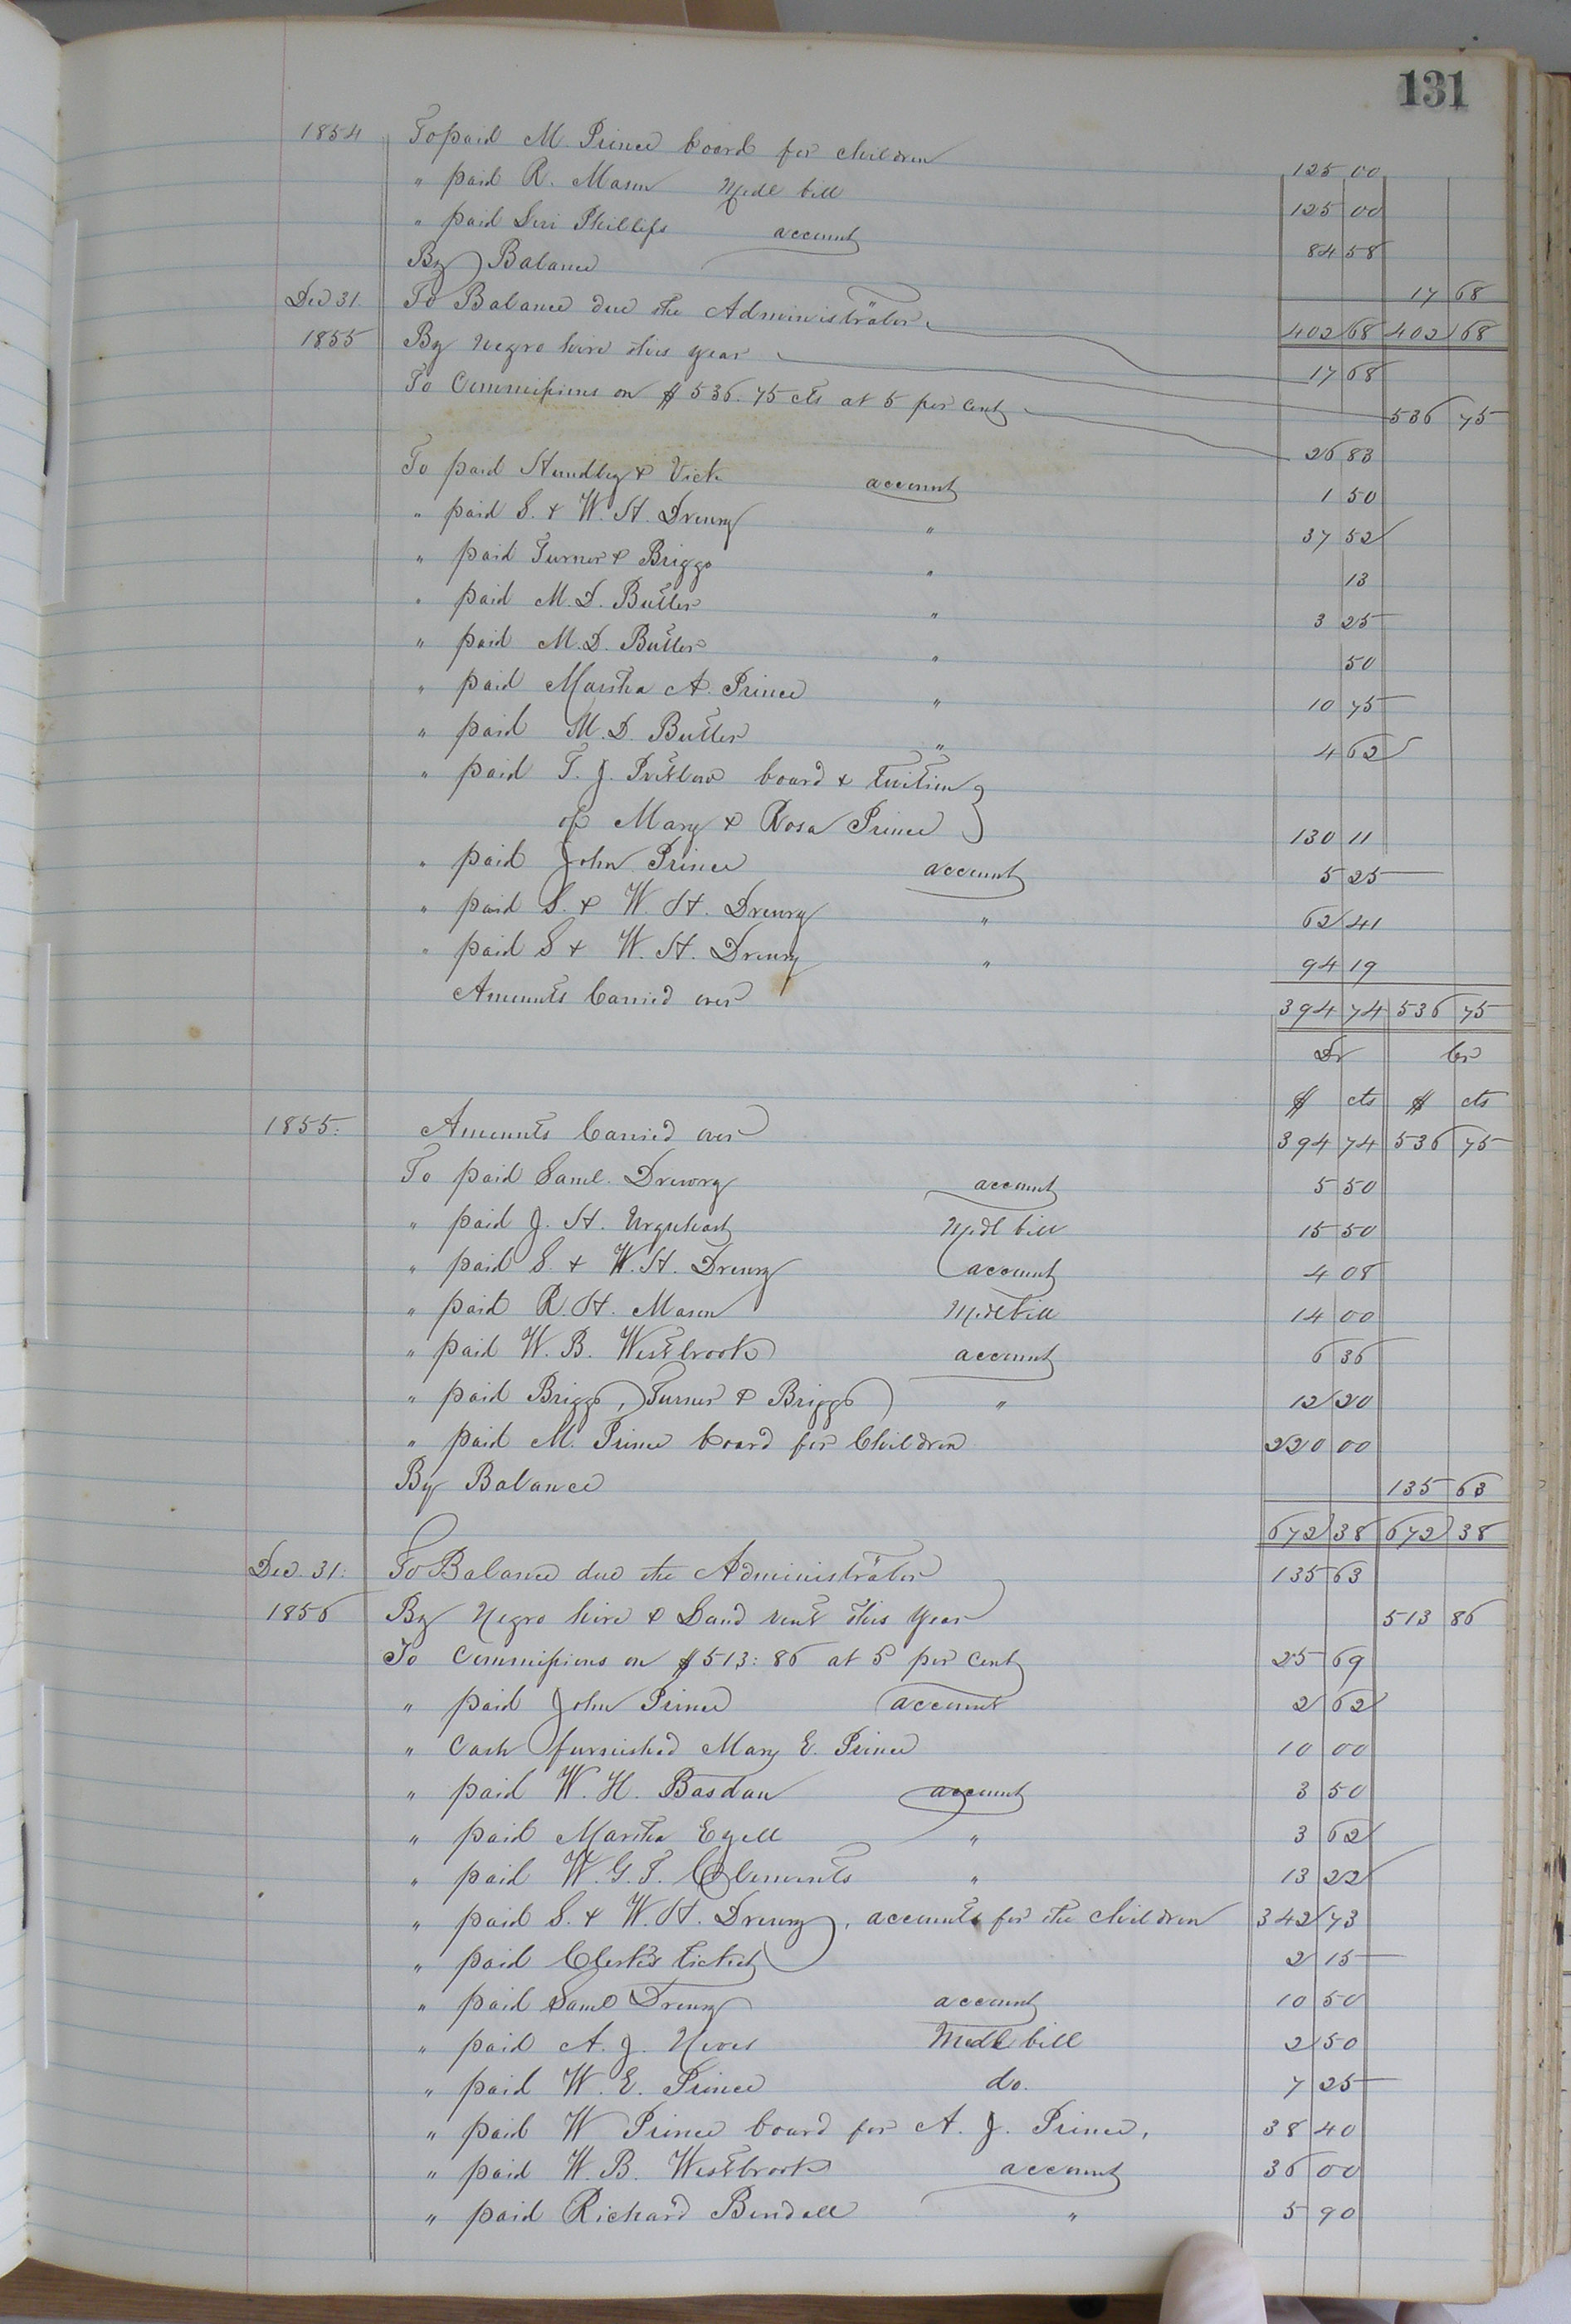 131
1854 To paid M. Prince board for children 125 00
" paid R. Mason Medl bill 125 00
" paid Levi Phillips account 84 58
By Balance 17 68
402 68 402 68
Dec 31. To Balance due the Administrator 17 68
1855 By Negro hire this year 536 75
To Commissions on $536.75 cts at 5 per cent 26 83
To paid Hundley & Vick account 1 50
" paid S. & W. H. Drewry " 37 52
" paid Turner & Briggs " 13
" paid M. D. Butler " 3 25
" paid M. D. Butler " 50
" paid Martha A. Prince " 10 75
" paid M. D. Butler " 4 62
" paid T. J. Pretlow board & tuition
of Mary & Rosa Prince 130 11
" paid John Prince account 5 25
" paid S. & W. H. Drewry " 62 41
" paid S & W. H. Drewry " 94 19
Amounts Carried over 394 74 536 75
Dr Cr
$ cts $ cts
1855. Amounts Carried over 394 74 536 75
To paid Saml. Drewry account 5 50
" paid J. H. Urquhart Medl bill 15 50
" paid S. & W. H. Drewry account 4 08
" paid R. H. Mason Medl bill 14 00
" paid W. B. Westbrook account 6 36
" paid Briggs, Turner & Briggs " 12 20
" paid M. Prince board for Children 220 00
By Balance 135 63
672 38 672 38
Dec. 31. To Balance due the Administrator 135 63
1856 By Negro hire & Land rent this year 513 86
To Commissions on $513:86 at 5 per cent 25 69
" paid John Prince account 2 62
" Cash furnished Mary E. Prince 10 00
" paid W. H. account 3 50
" paid Martha Ezell " 3 62
" paid W. G. F. Clements " 13 22
" paid S. & W. H. Drewry, accounts for the children 342 73
" paid Clerk's ticket 2 15
" paid Saml Drewry account 10 50
" paid A. J. Medl bill 2 50
" paid W. E. Prince do. 7 25
" paid W Prince board for A. J. Prince, 38 40
" paid W. B. Westbrook account 36 00
" paid Richard Bendall " 5 90